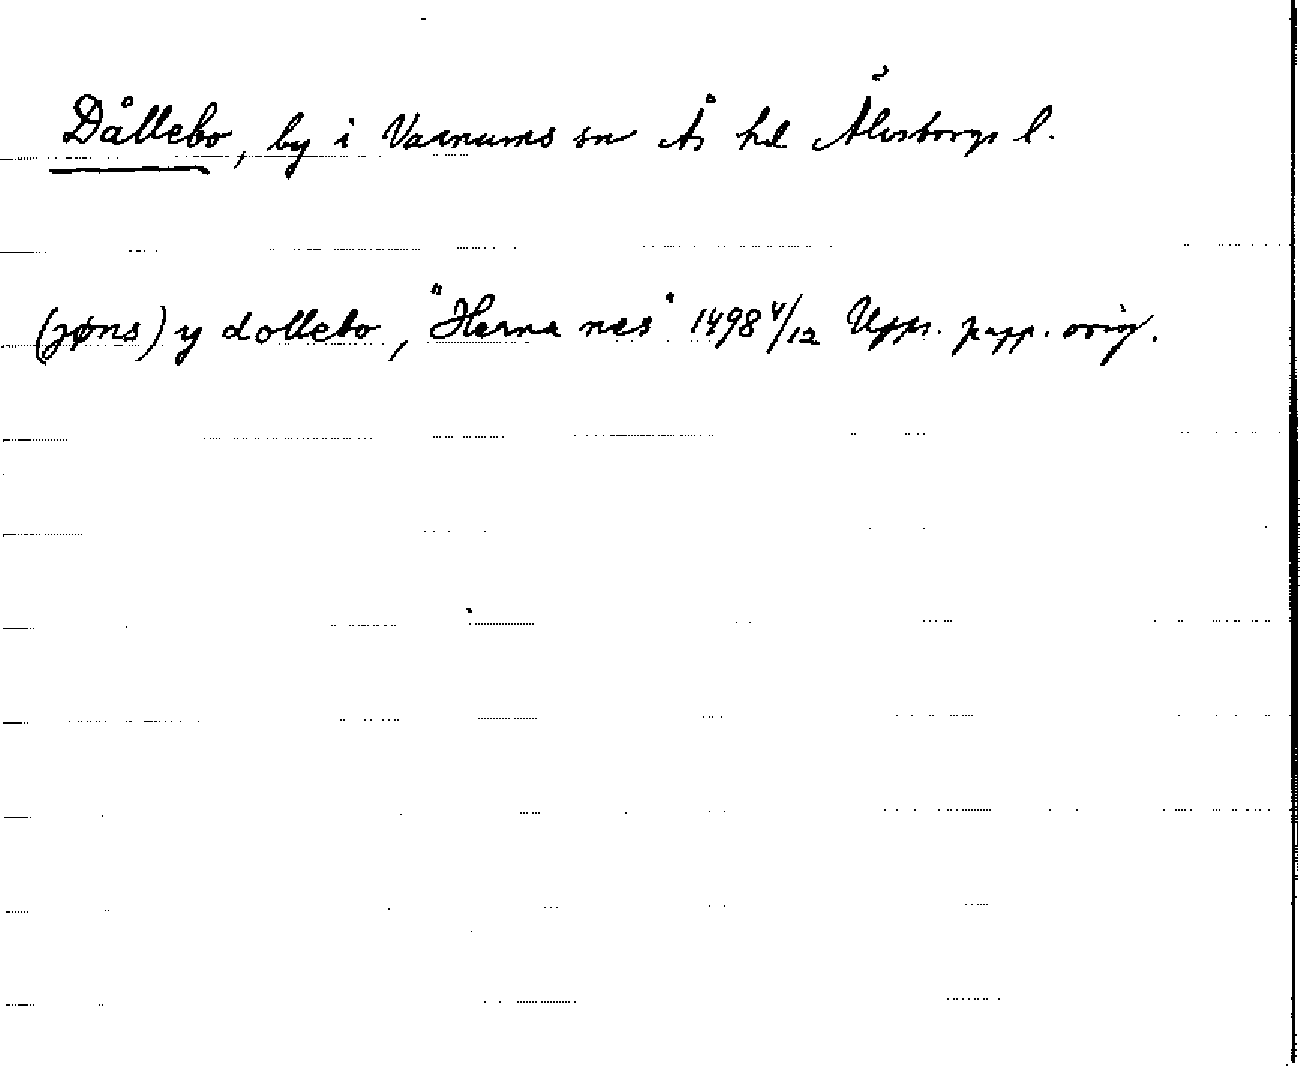 Dållebo, by i Varnums sn Ås hd Älvsborgs l.
(jøns) y dollebo, "Herna nes" 1498 4/12 Upps. papp. orig.